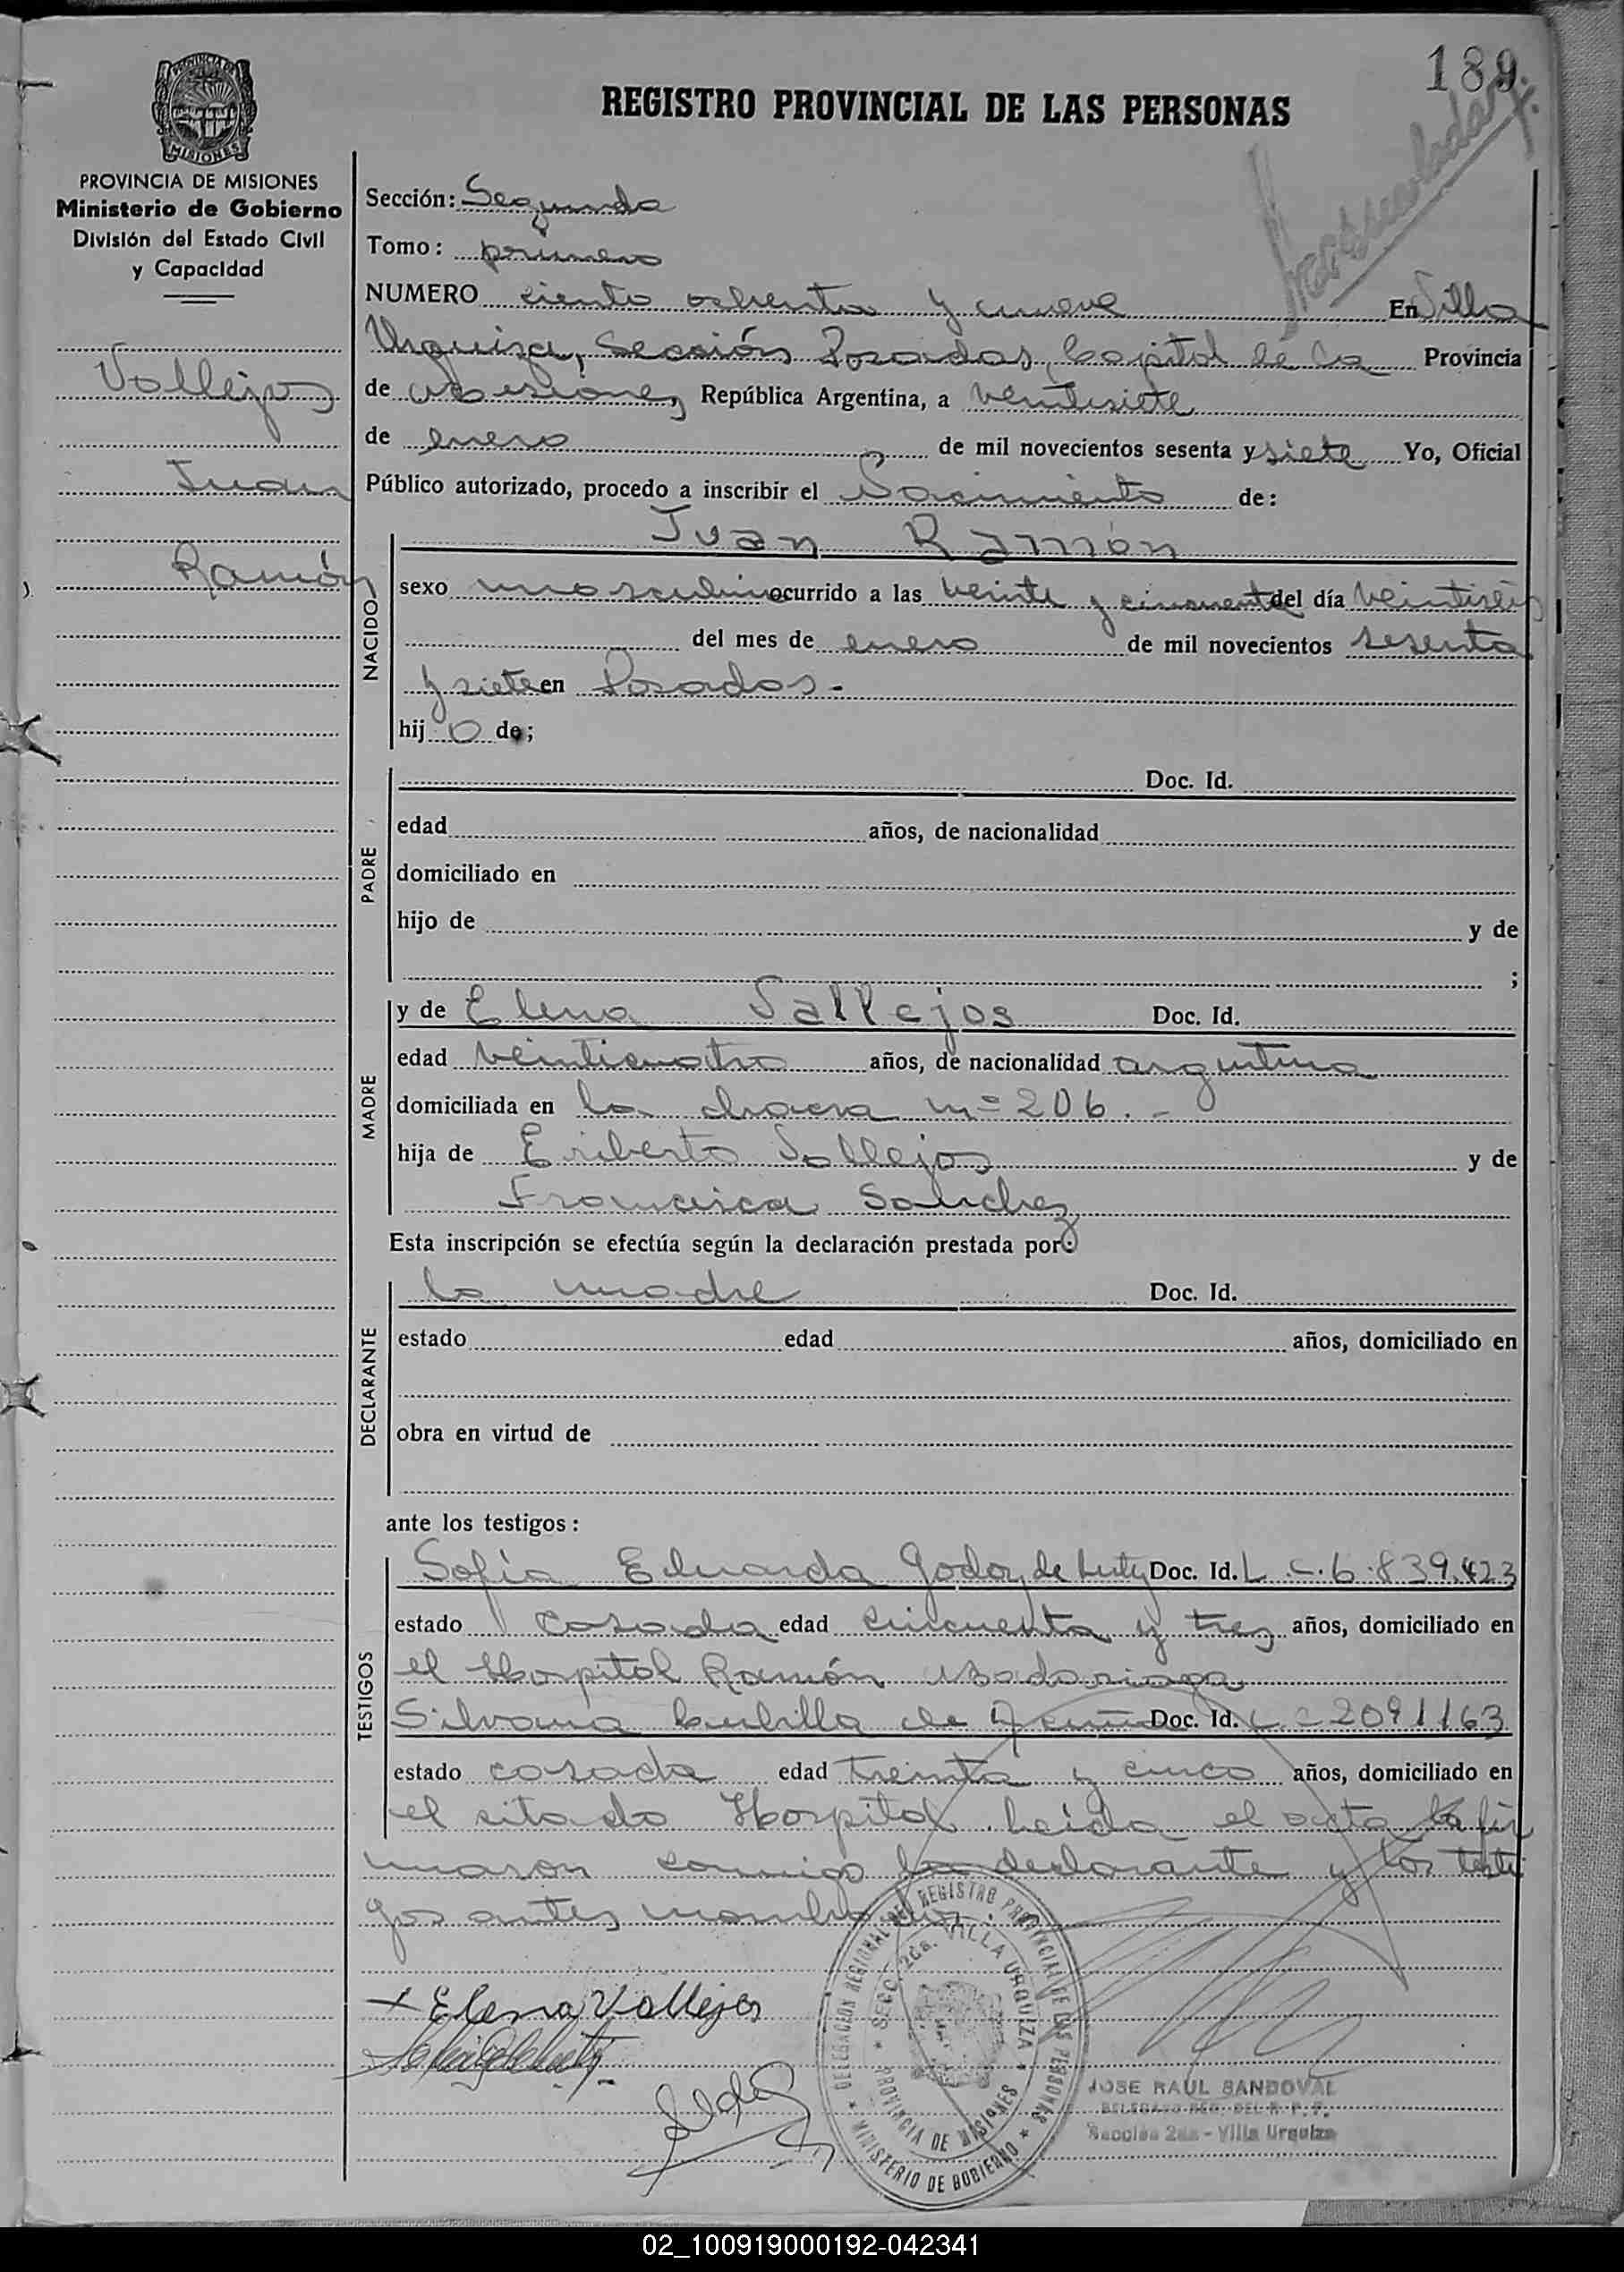 189
REGISTRO PROVINCIAL DE LAS PERSONAS
PROVINCIA DE
MISIONES
PROVINCIA DE MISIONES
Ministerio de Gobierno
División del Estado Civil
y Capacidad
Vallejos
Juan
Ramón
Sección: Segunda
Tomo: primero
NUMERO ciento ochenta y nueve En Villa
Urquiza, Sección Posadas, Capital de la Provincia
de Misiones, República Argentina, a veintisiete
de enero de mil novecientos sesenta y siete Yo, Oficial
Público autorizado, procedo a inscribir el Nacimiento de:
NACIDO
Juan Ramón
sexo masculino ocurrido a las veinte y cincuenta del día veintiséis
del mes de enero de mil novecientos sesenta
y siete en Posadas.-
hijo de;
PADRE
Doc. Id.
edad años, de nacionalidad
domiciliado en
hijo de y de
;
MADRE
y de Elena Vallejos Doc. Id.
edad veinticuatro años, de nacionalidad argentina
domiciliada en la chacra nº 206.-
hija de Eriberto Vallejos y de
Francisca Sanchez
Esta inscripción se efectúa según la declaración prestada por:
DECLARANTE
la madre Doc. Id.
estado edad años, domiciliado en
obra en virtud de
ante los testigos:
TESTIGOS
Sofía Eduarda Godoy de Doc. Id. L.C. 6.839.423
estado casada edad cincuenta y tres años, domiciliado en
el Hospital Ramón Madariaga
Silvana de Doc. Id. L.C 2091163
estado casada edad treinta y cinco años, domiciliado en
el citado Hospital. Leída el acta la fir
maron conmigo la declarante y los testi
gos antes nombrados.
+ Elena Vallejos
DELEGACION REGIONAL DEL REGISTRO PROVINCIAL DE LAS PERSONAS
SECC. 2da. VILLA URQUIZA
PROVINCIA DE MISIONES
MINISTERIO DE GOBIERNO
JOSE RAUL SANDOVAL
DELEGADO REG. DEL R. P. P.
Sección 2da - Villa Urquiza
02_100919000192-042341